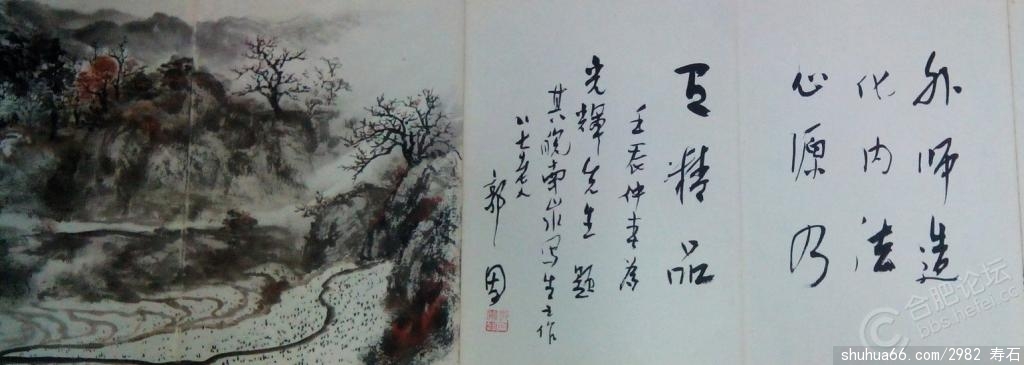 外师造
化内法
心源乃
有精品
壬辰仲春为
光辉先生题
其皖南写生之作
八七老人
郭因
合肥论坛
bbs.hefei.cc
shuhua66.com/2982 寿石